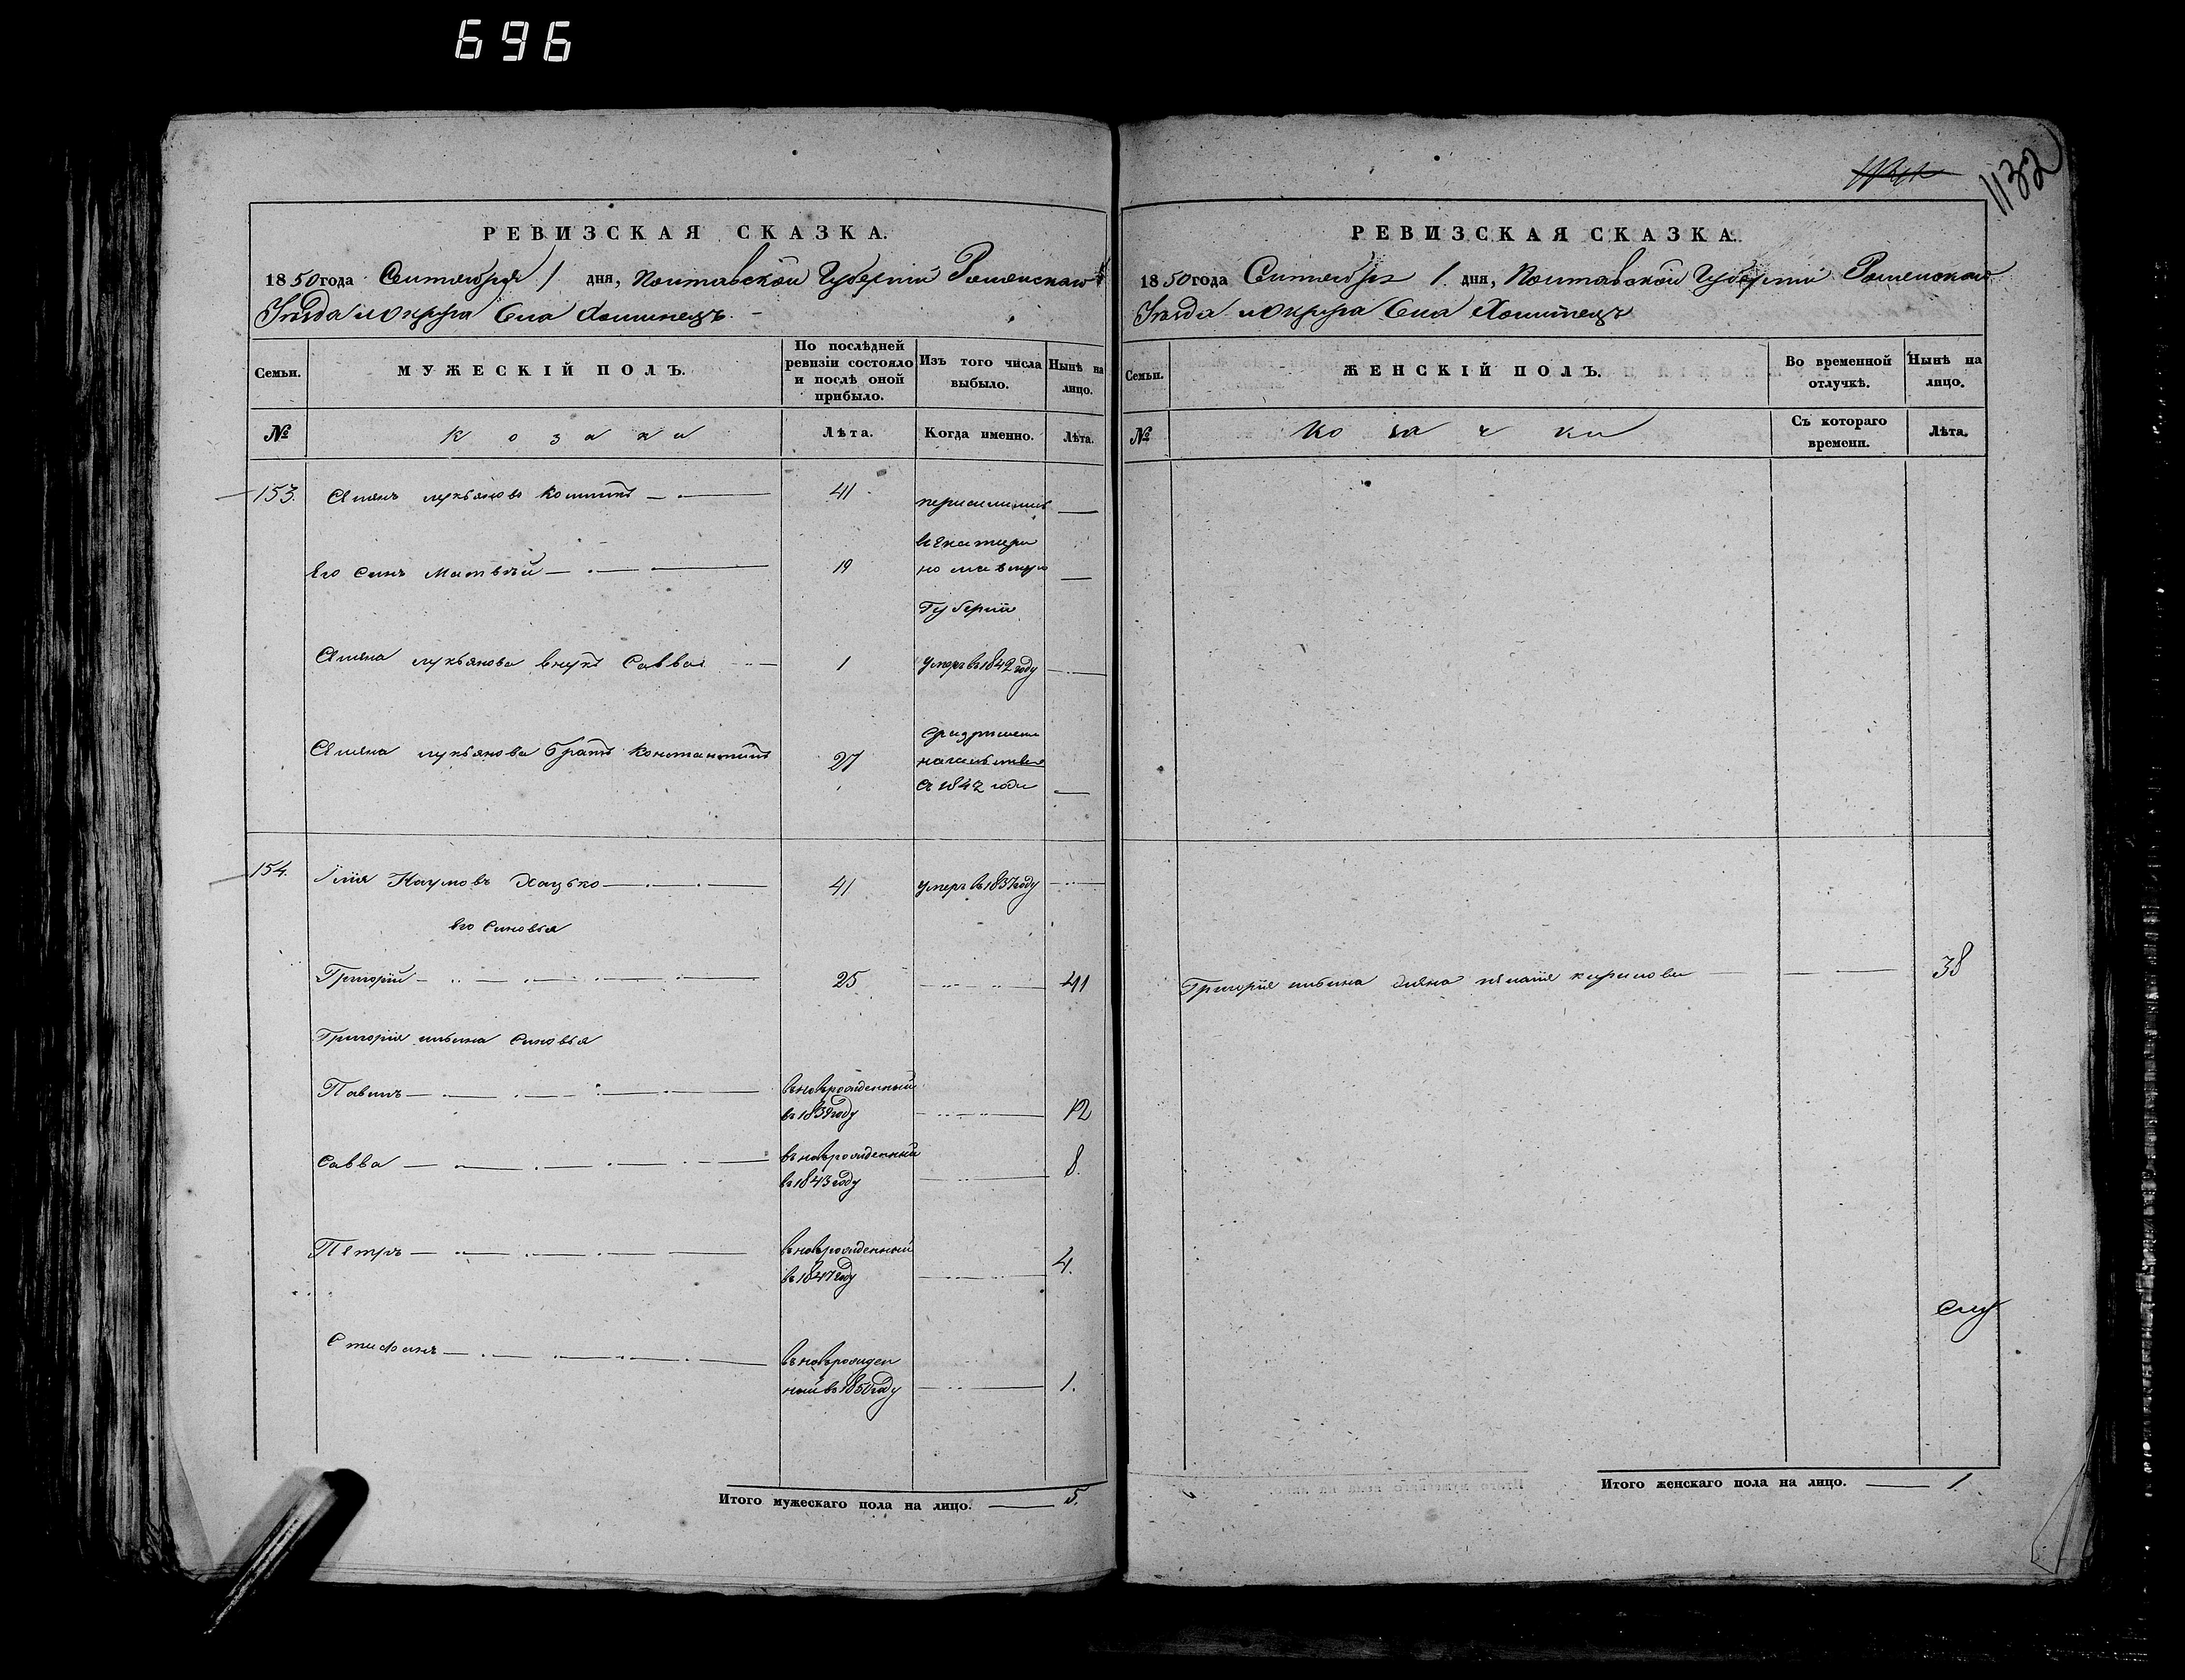 696
1132
РЕВИЗСКАЯ СКАЗКА.
1850 года Сентября 1 дня, Полтавской Губернiи Роменскаго
Уезда и Округа Села Хоминецъ.
Семьи.
МУЖЕСКІЙ ПОЛЪ.
По послѣдней ревизіи состояло и послѣ оной прибыло.
Изъ того числа выбыло.
Нынѣ на лицо.
№
Козаки
Лѣта.
Когда именно.
Лѣта.
153. Лукьяновъ 41
Его Синъ Матвѣй 19
Губернiи
Лукьянова внукъ Савва 1 умеръ въ 1842 году
Лукьянова братъ Константинъ 27
съ 1842 года
154. Илiя Наумовъ Хацько 41 умеръ въ 1837 году
Его Синовья
Григорiй 25 41
Григорiя Ильина Синовья
Павелъ
вновърожденный
въ 1839 году 12
Савва
вновърожденный
въ 1843 году 8.
Петръ
вновърожденный
въ 1847 году 4.
Стефанъ
вновърожден
ный въ 1850 году 1.
Итого мужескаго пола на лицо. 5.
РЕВИЗСКАЯ СКАЗКА.
1850 года Сентября 1 дня, Полтавской Губернiи Роменскаго
Уезда и Округа Села Хоминецъ
Семьи.
ЖЕНСКІЙ ПОЛЪ.
Во временной отлучкѣ.
Нынѣ на лицо.
№
Козачки
Съ котораго времени.
Лѣта.
Григорiя Ильина жена Кирилова 38
Итого женскаго пола на лицо. 1